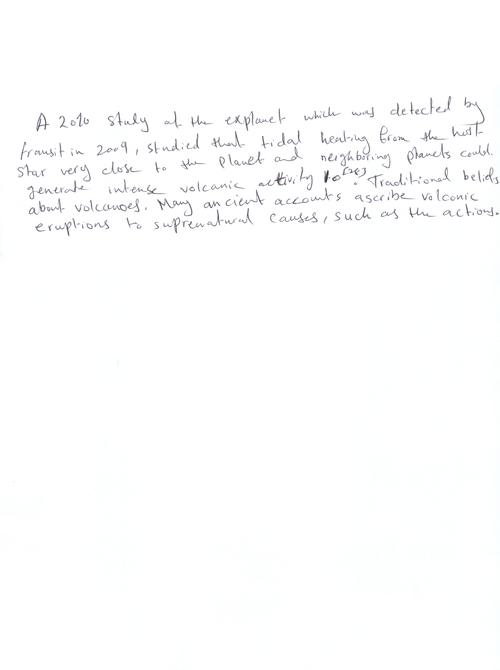 A 2010 study of the explanet which was detected by
transit in 2009, studied that tidal heating from the host
star very close to the planet and neighboring planets could.
generate intense volcanic activity to Traditional beliefs
about volcanoes. Many ancient accounts ascribe volcanic
eruptions to suprenatural causes, such as the actions.